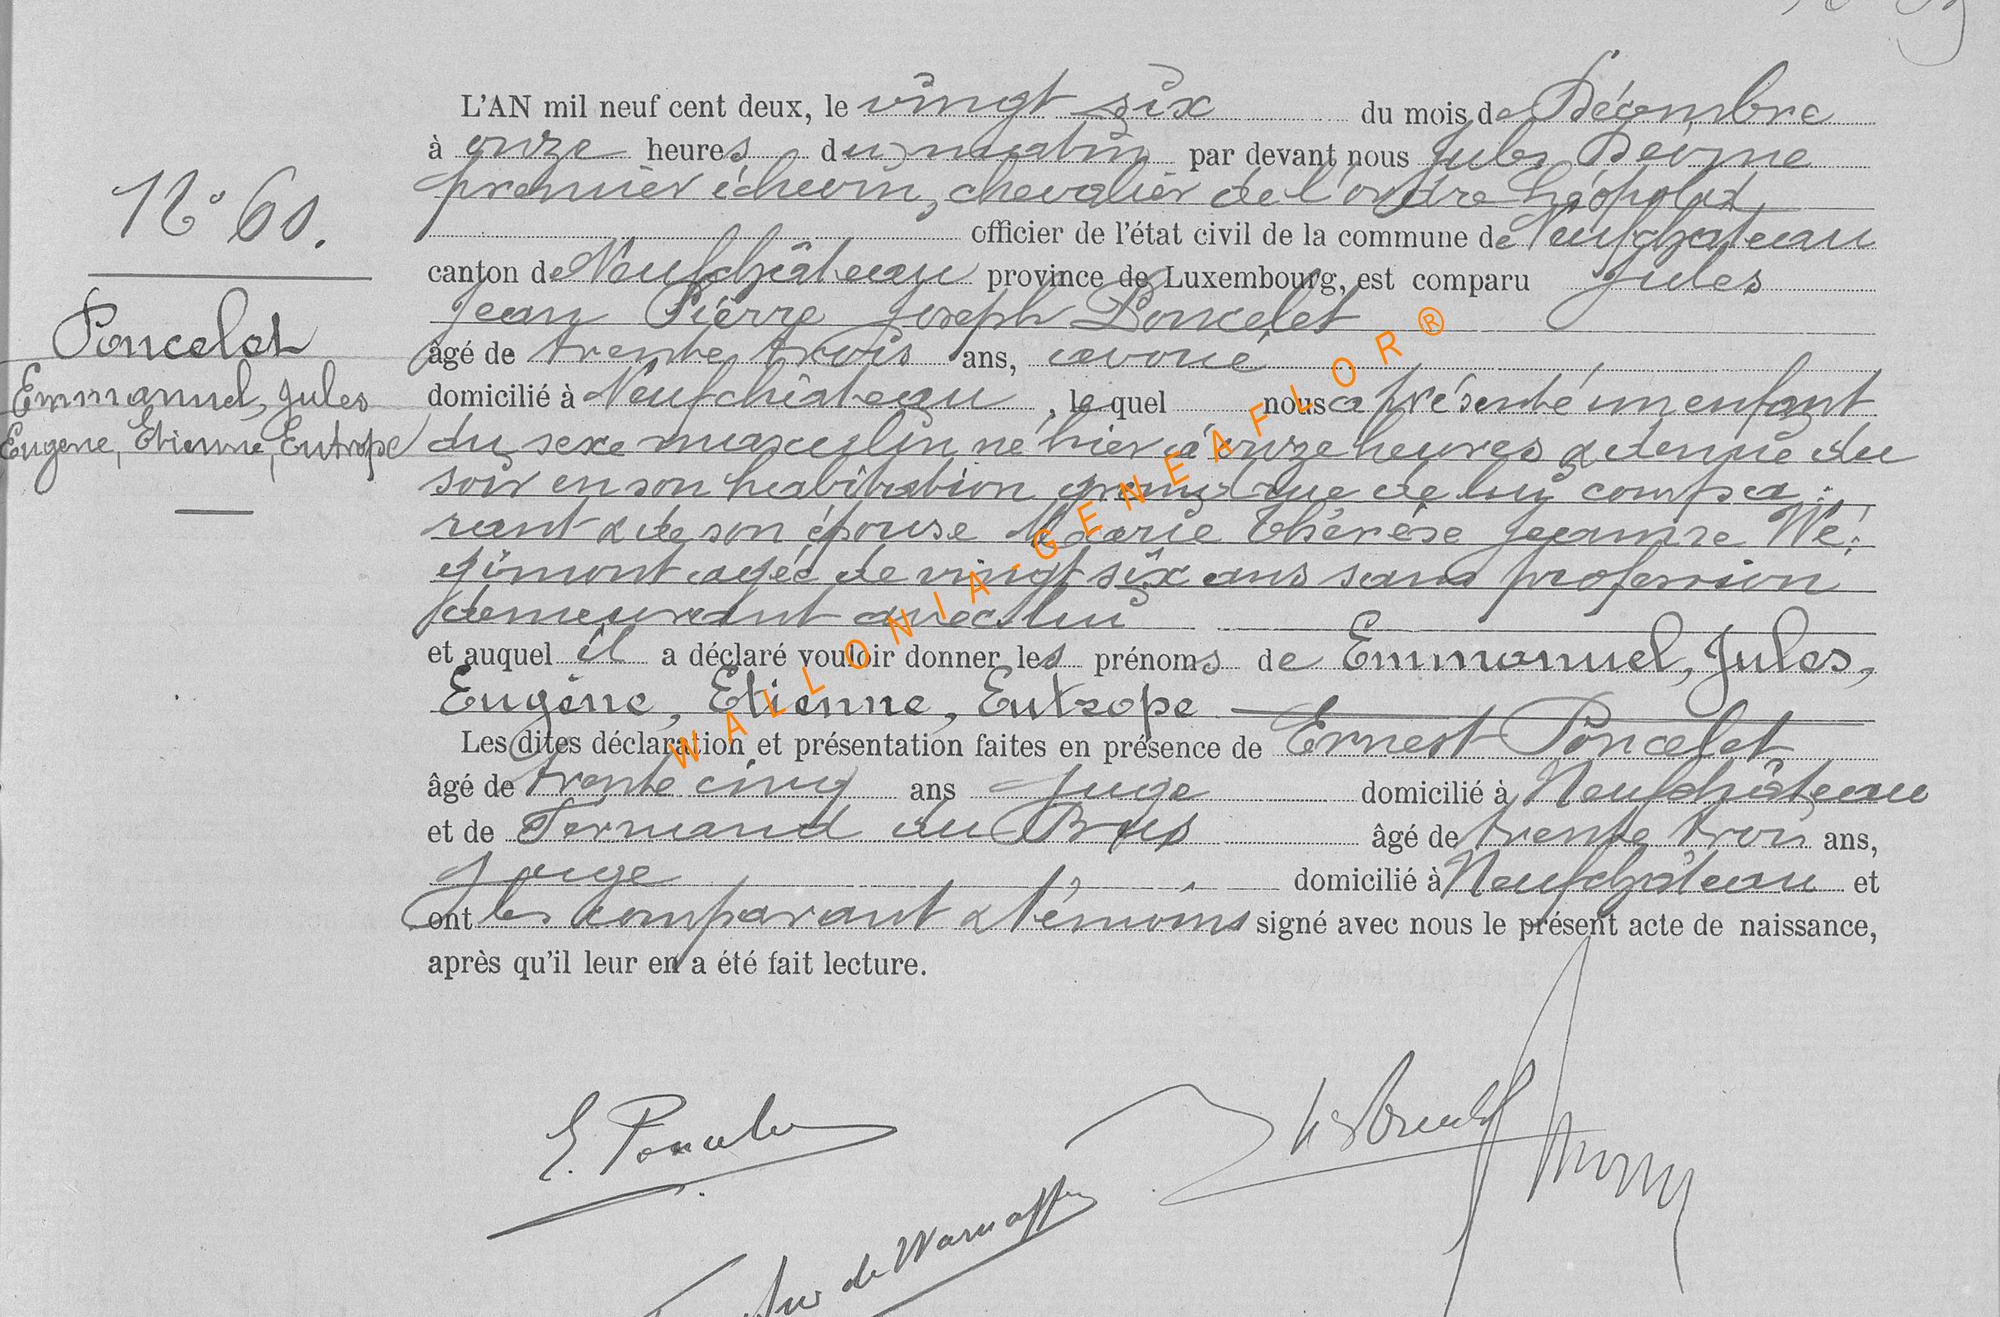 N° 60.
Poncelet
Emmanuel, Jules
Eugène, Etienne, Eutrope
L'AN mil neuf cent deux, le vingt six du mois de Décembre
à onze heures du matin par devant nous Jules
premier échevin, chevalier de l'ordre Léopold
officier de l'état civil de la commune de Neufchâteau
canton de Neufchâteau province de Luxembourg, est comparu Jules
Jean Pierre Joseph Poncelet
âgé de trente trois ans, avoué
domicilié à Neufchâteau, lequel nous a présenté un enfant
du sexe masculin né hier à onze heures & demie du
soir en son habitation grand rue de lui compa:
rant & de son épouse Marie Thérèse Jeanne Wé:
gimont agée de vingt six ans sans profession
demeurant avec lui
et auquel il a déclaré vouloir donner les prénoms de Emmanuel, Jules,
Eugène, Etienne, Eutrope
Les dites déclaration et présentation faites en présence de Ernest Poncelet
âgé de trente cinq ans Juge domicilié à Neufchâteau
et de Fernand du Bus âgé de trente trois ans,
Juge domicilié à Neufchâteau et
ont les comparant & témoins signé avec nous le présent acte de naissance,
après qu'il leur en a été fait lecture.
E. Poncelet
de Warnaffe
WALLONIA-GENEAFLOR®